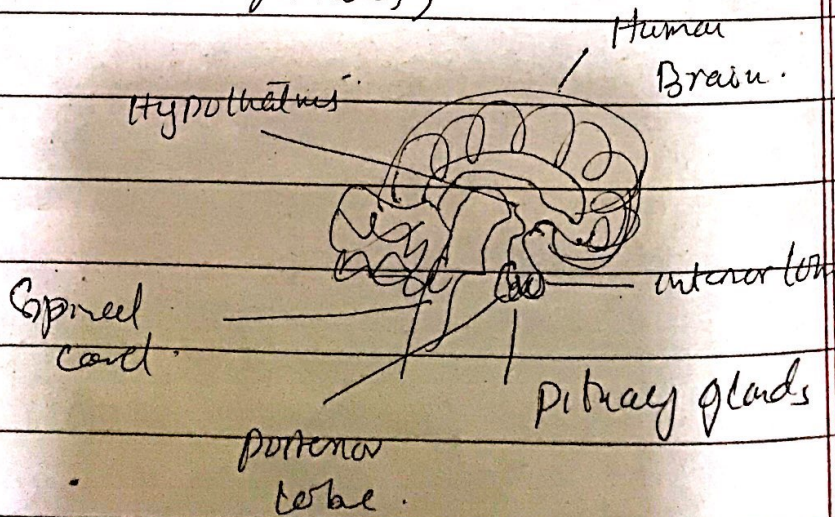 Human
Brain.
Hypothalmus
anterior
Spinel
cord.
Pituary glands
Posterior
Lobe.